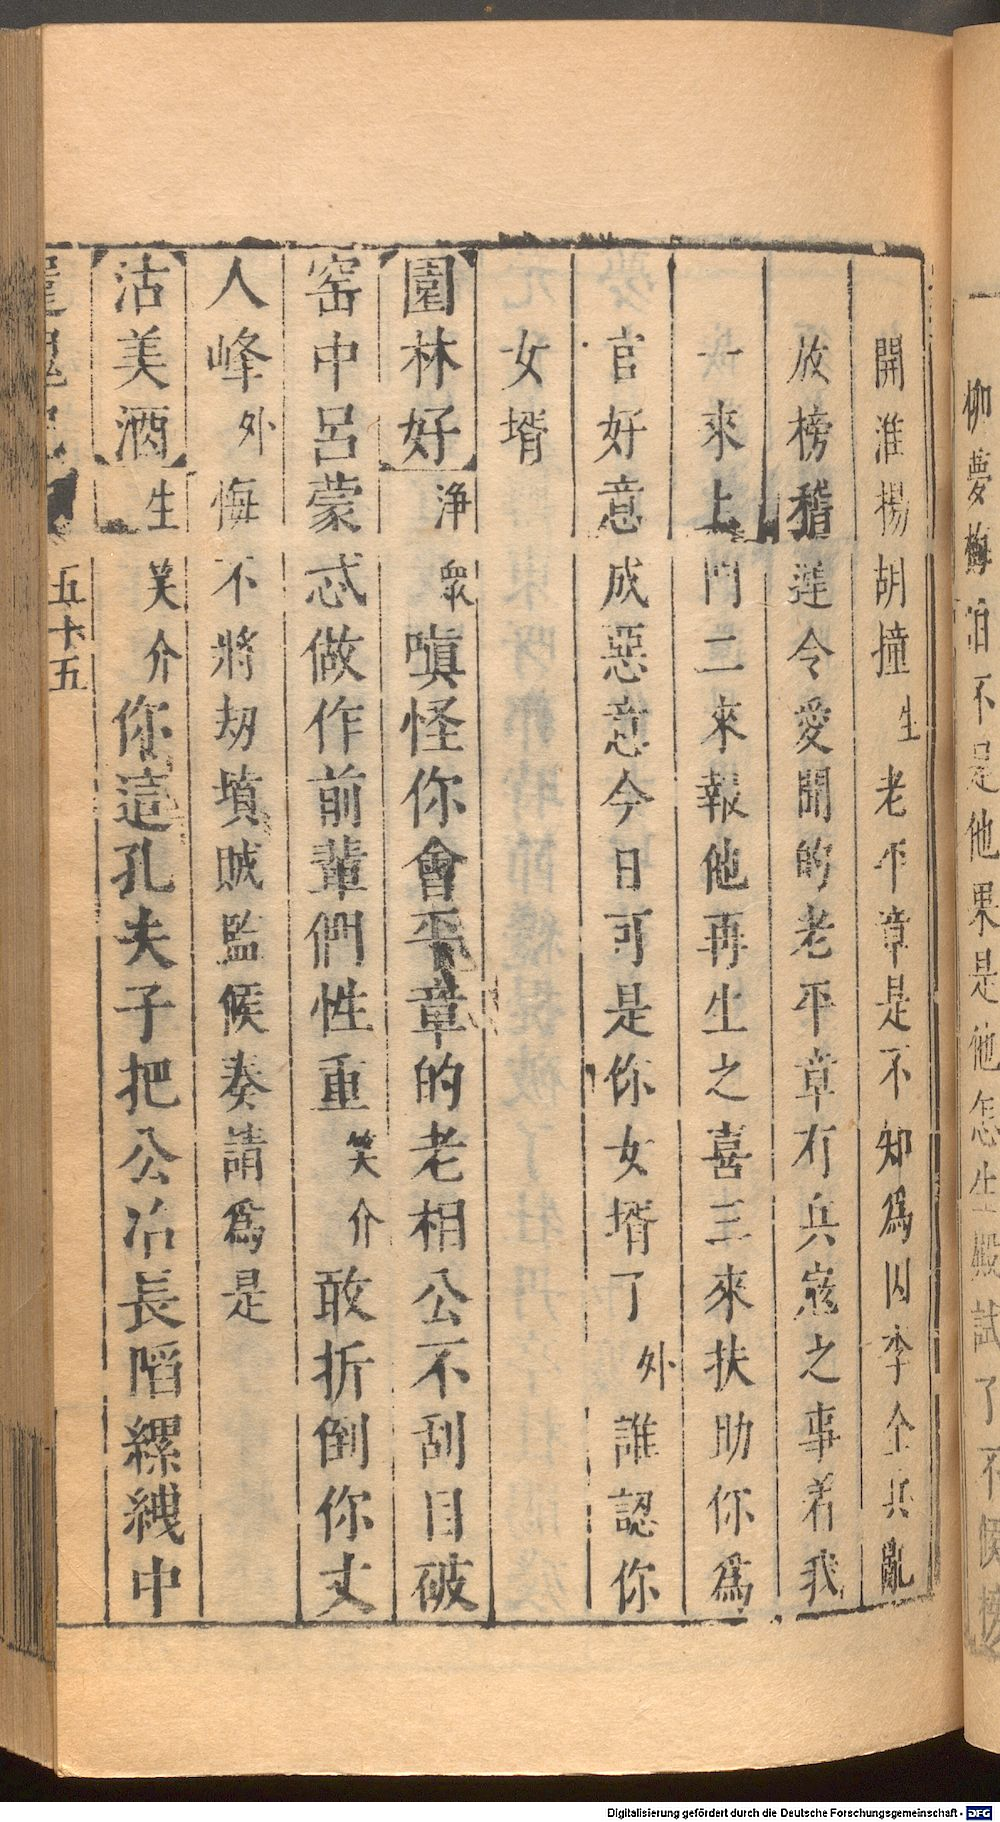 柳夢梅怕不是他果是他怎生殿試了不候榜
開淮揚胡撞生老平章是不知爲因李全兵亂
放榜稽遲令愛聞的老平章有兵寇之事着我
一來上門二來報他再生之喜三來扶助你爲
官好意成惡意今日可是你女壻了外誰認你
女壻
園林好淨衆嗔怪你會平章的老相公不刮目破
窑中呂蒙忒做作前輩們性重笑介敢折倒你丈
人峰外悔不將劫墳賊監候奏請爲是
沽美酒生笑介你這孔夫子把公冶長陷縲絏中
五十五
Digitalisierung gefördert durch die Deutsche Forschungsgemeinschaft - DFG